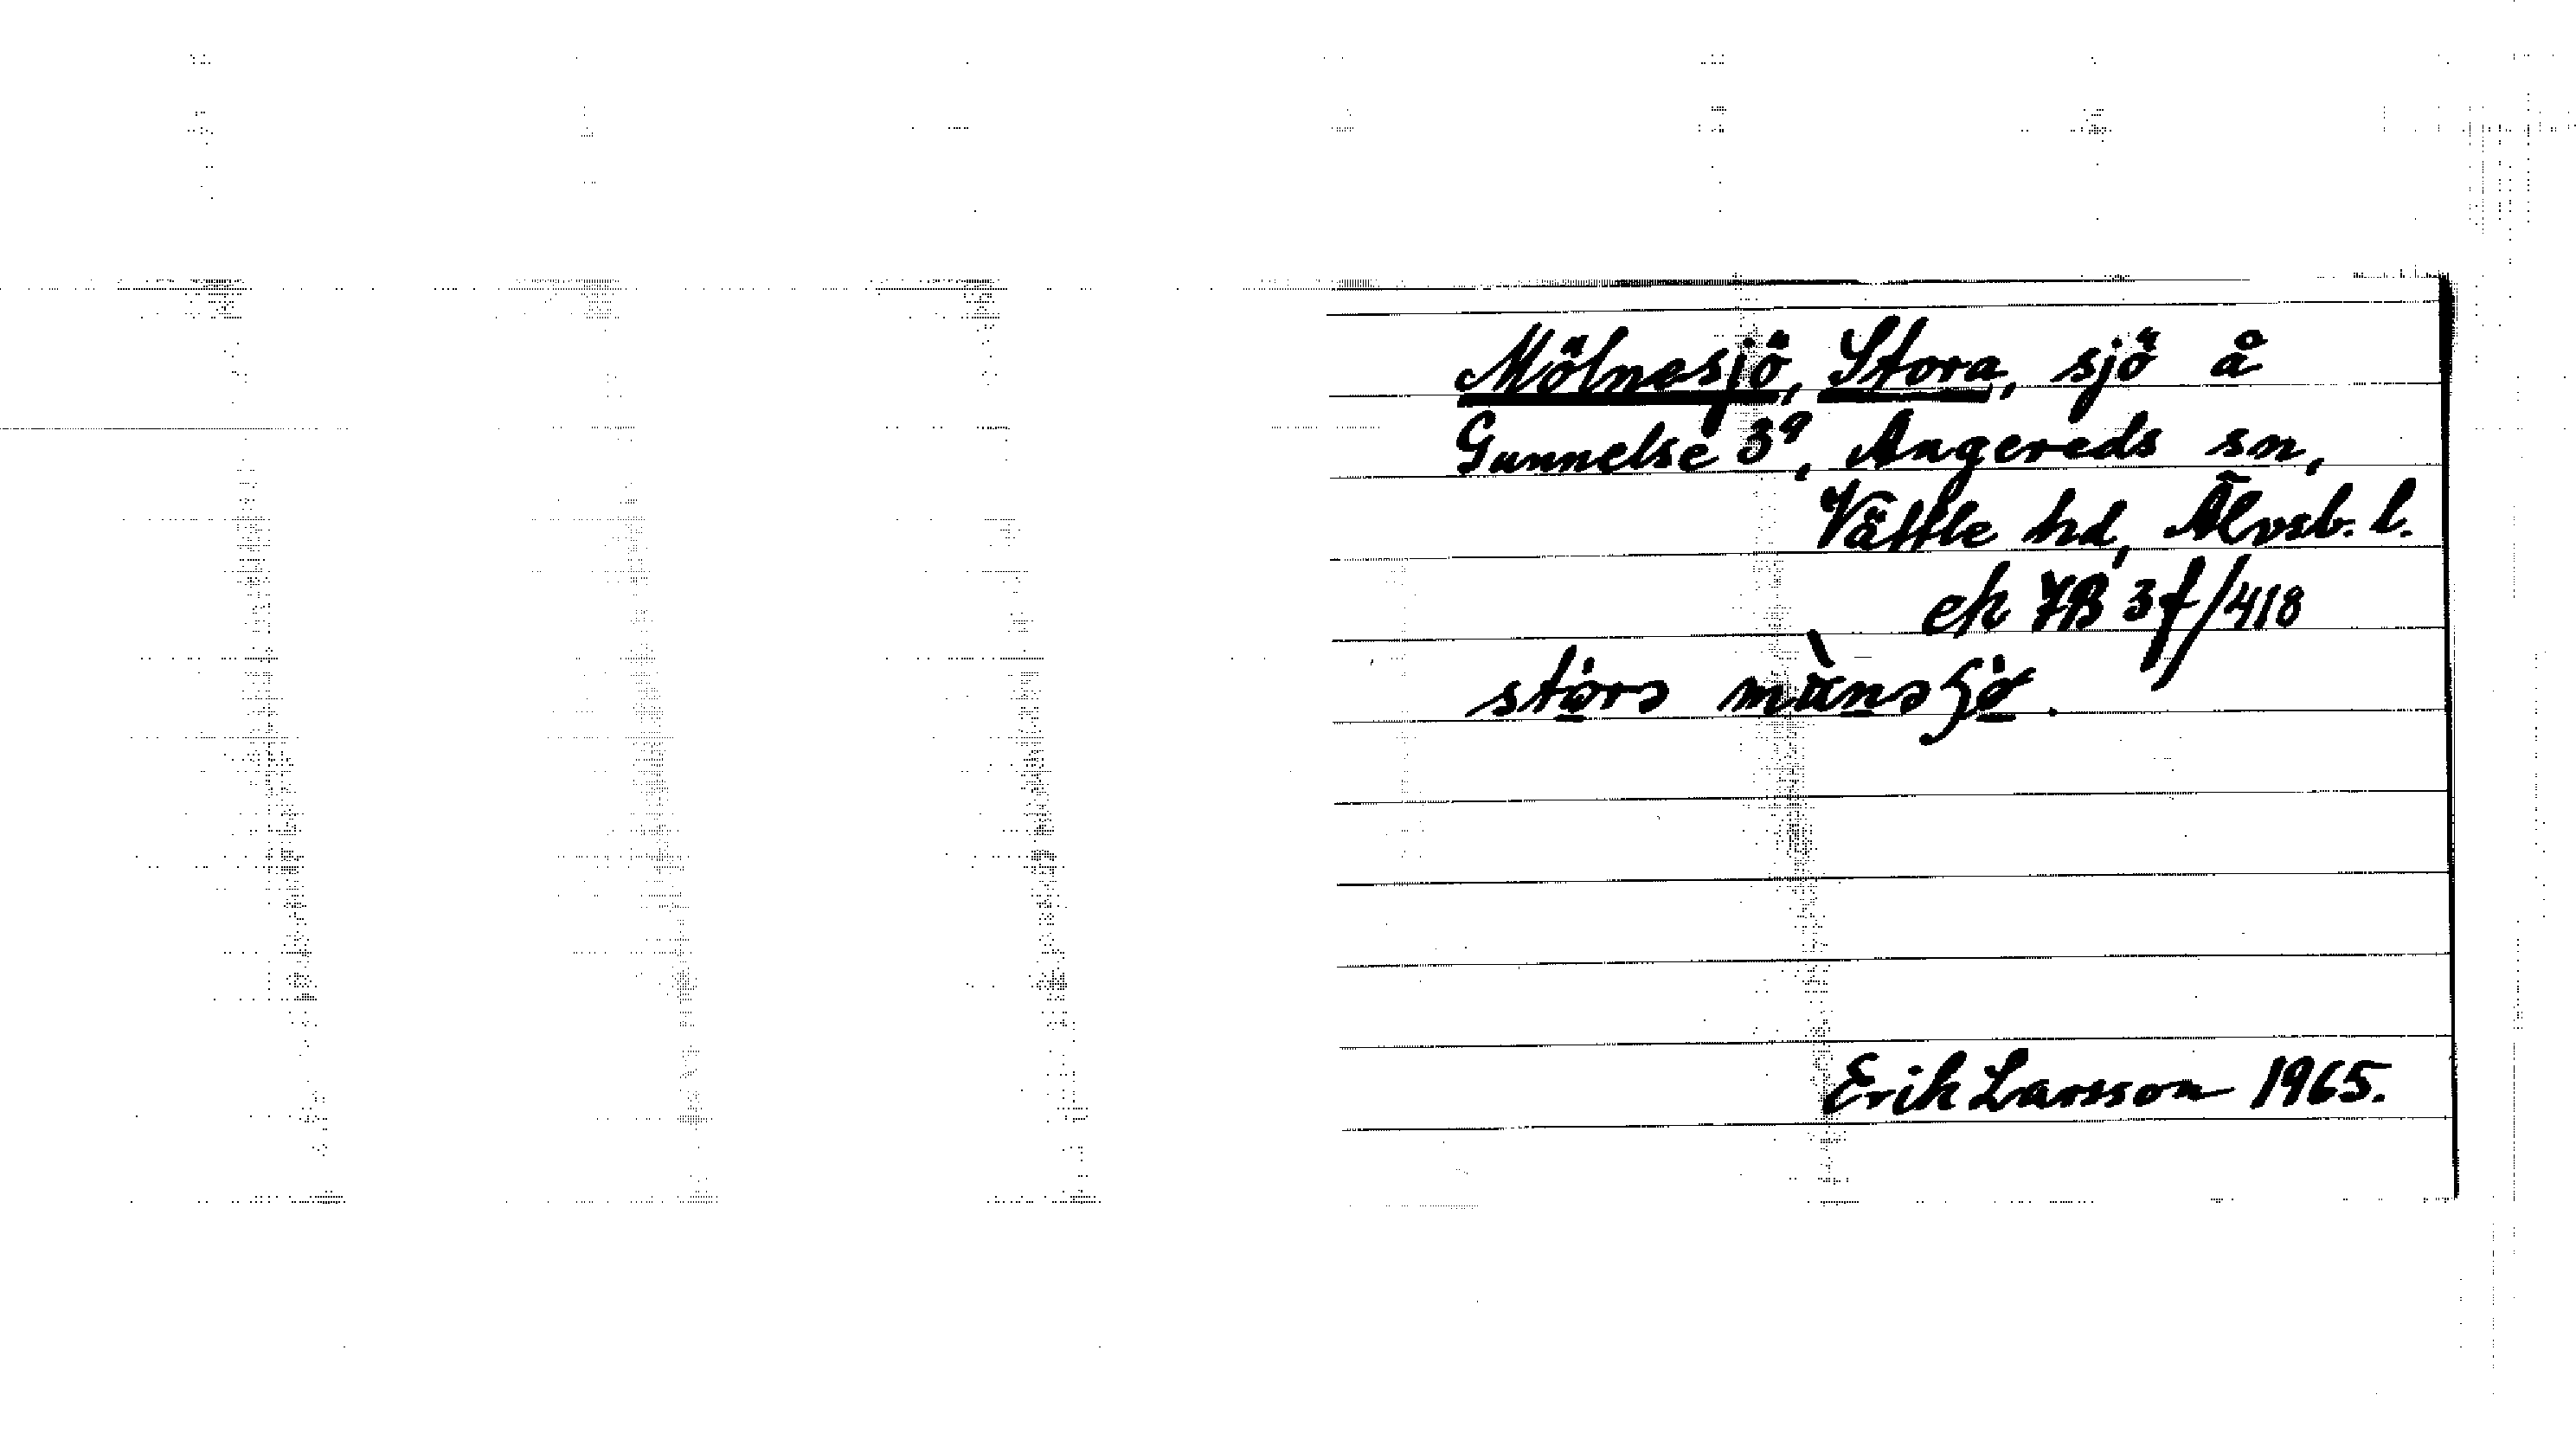 Mölnesjö, Stora, sjö å
Gunnelse 3⁹, Angereds sn,
Vättle hd, Älvsb. l.
ek 7B 3f/418
Erik Larsson 1965.